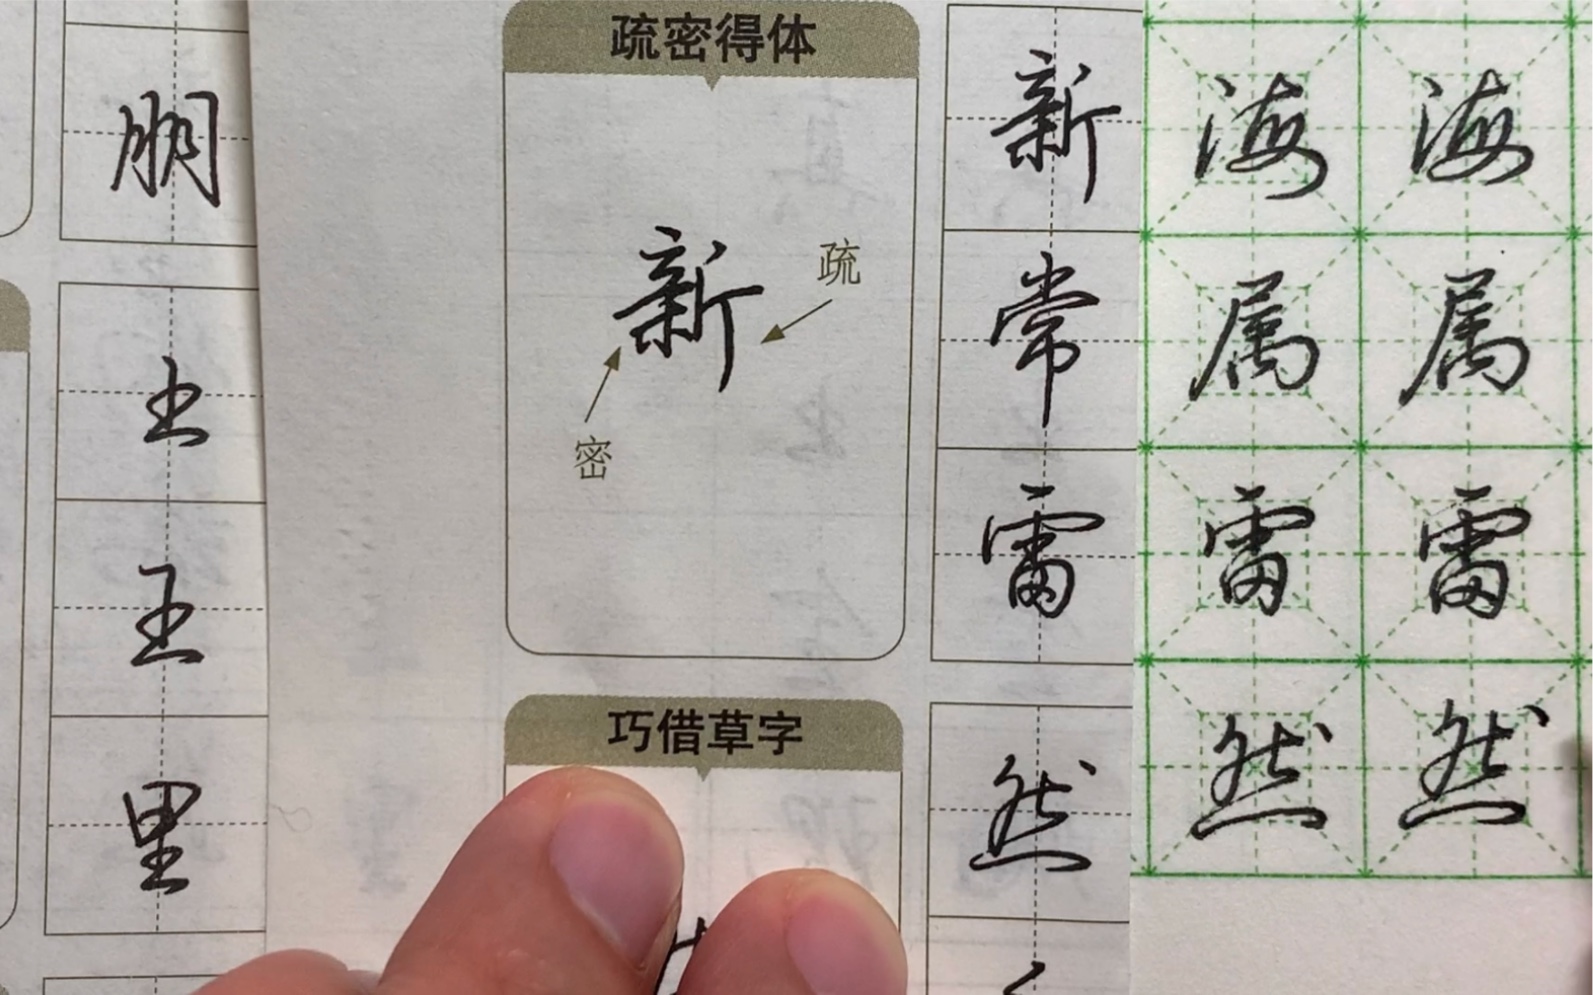 朋
土
王
里
疏密得体
新
疏
密
巧借草字
新
常
雷
然
海 海
属 属
雷 雷
然 然